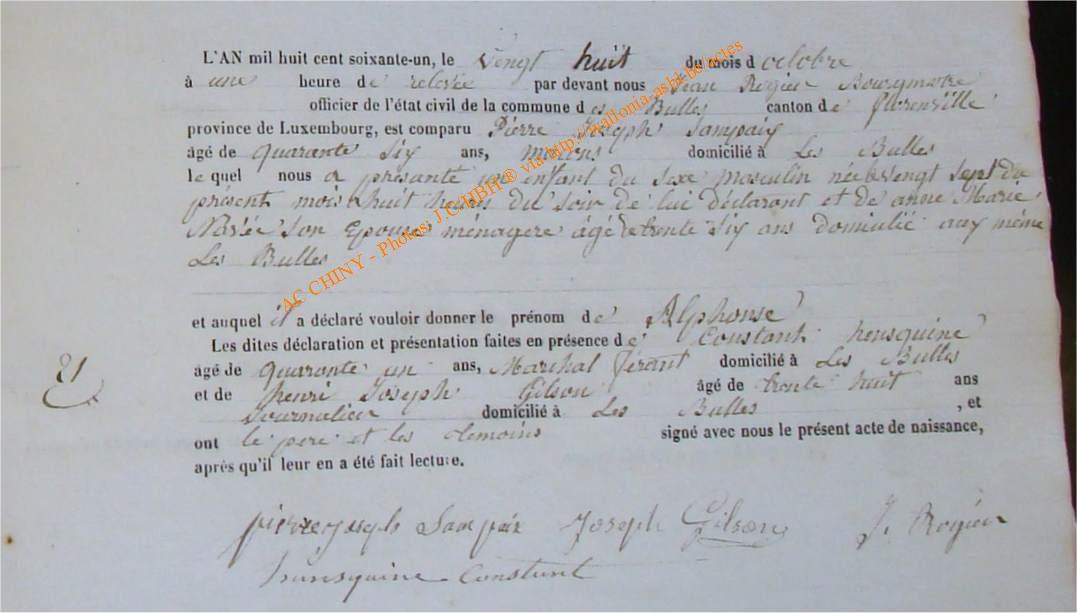 L'AN mil huit cent soixante-un, le vengt huit du mois d octobre
à une heure de relevée par devant nous Jean Rogier Bourgmetre
officier de l'état civil de la commune des Bulles canton de florenville
province de Luxembourg, est comparu Pierre Joseph Sampaix
âgé de quarante six ans, domicilié à Les Bulles
le quel nous a présanté un enfant du sexe masculin né le vengt sept du
présent mois huit heures du soir de lui déclarant et de anne Marie
son Epouse ménagere âgé de trente six ans domicilié aux même
Les Bulles
et auquel il a déclaré vouloir donner le prénom de Alphonse
Les dites déclaration et présentation faites en présence de Constant hensquine
âgé de quarante un ans, Marchal férant domicilié à Les Bulles
21
et de henri Joseph Gilson âgé de trente huit ans
Journalier domicilié à Les Bulles , et
ont le pere et les temoins signé avec nous le présent acte de naissance,
après qu'il leur en a été fait lecture.
pierre joseph Sampaix Joseph Gilson J. Rogier
hensquine Constant
AC CHINY - Photos: J.C. HBH® via http://wallonia-asbl-be/actes